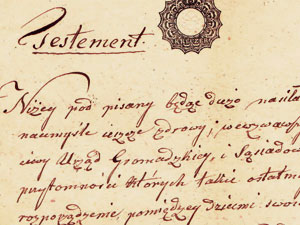 Testement.
Niżey pod pisany będąc dużo na siła
naumyśle wszze zdrowy, wezwawsz
ciwy Urząd Gromadzkiey, i Sąsiadow
przytomności których takie ostatni
rozporządzenie, pomiędzey dziećmi swoi